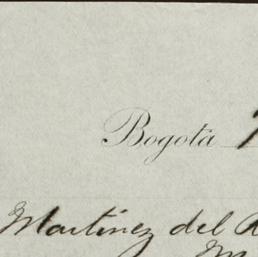 Bogotá
Martínez del